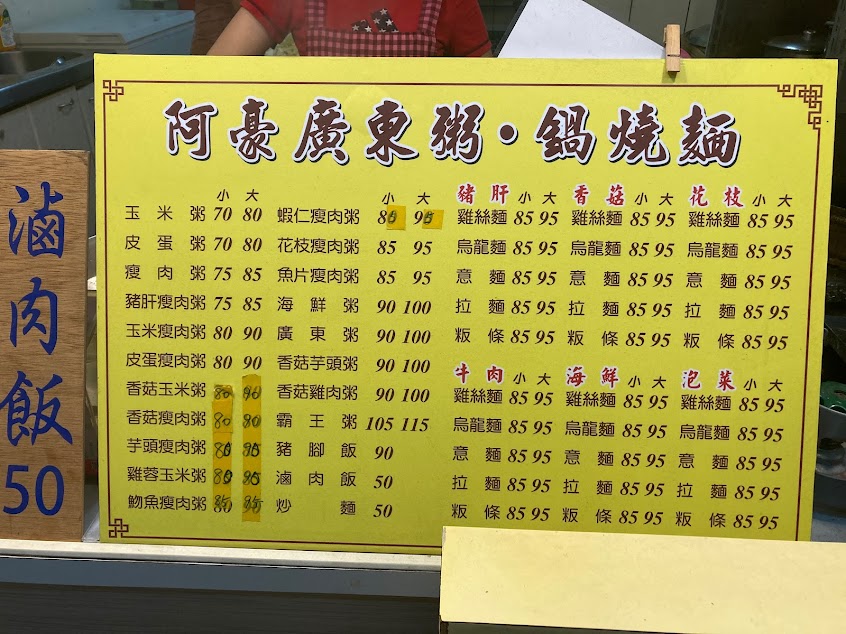 阿豪廣東粥・鍋燒麵
滷肉飯
50
小 大
玉米粥 70 80
皮蛋粥 70 80
瘦肉粥 75 85
豬肝瘦肉粥 75 85
玉米瘦肉粥 80 90
皮蛋瘦肉粥 80 90
香菇玉米粥 80 90
香菇瘦肉粥 80 90
芋頭瘦肉粥
雞蓉玉米粥
魩魚瘦肉粥
小 大
蝦仁瘦肉粥 80 90
花枝瘦肉粥 85 95
魚片瘦肉粥 85 95
海鮮粥 90 100
廣東粥 90 100
香菇芋頭粥 90 100
香菇雞肉粥 90 100
霸王粥 105 115
豬腳飯 90
滷肉飯 50
炒麵 50
豬肝 小 大
雞絲麵 85 95
烏龍麵 85 95
意麵 85 95
拉麵 85 95
粄條 85 95
香菇 小 大
雞絲麵 85 95
烏龍麵 85 95
意麵 85 95
拉麵 85 95
粄條 85 95
花枝 小 大
雞絲麵 85 95
烏龍麵 85 95
意麵 85 95
拉麵 85 95
粄條 85 95
牛肉 小 大
雞絲麵 85 95
烏龍麵 85 95
意麵 85 95
拉麵 85 95
粄條 85 95
海鮮 小 大
雞絲麵 85 95
烏龍麵 85 95
意麵 85 95
拉麵 85 95
粄條 85 95
泡菜 小 大
雞絲麵 85 95
烏龍麵 85 95
意麵 85 95
拉麵 85 95
粄條 85 95